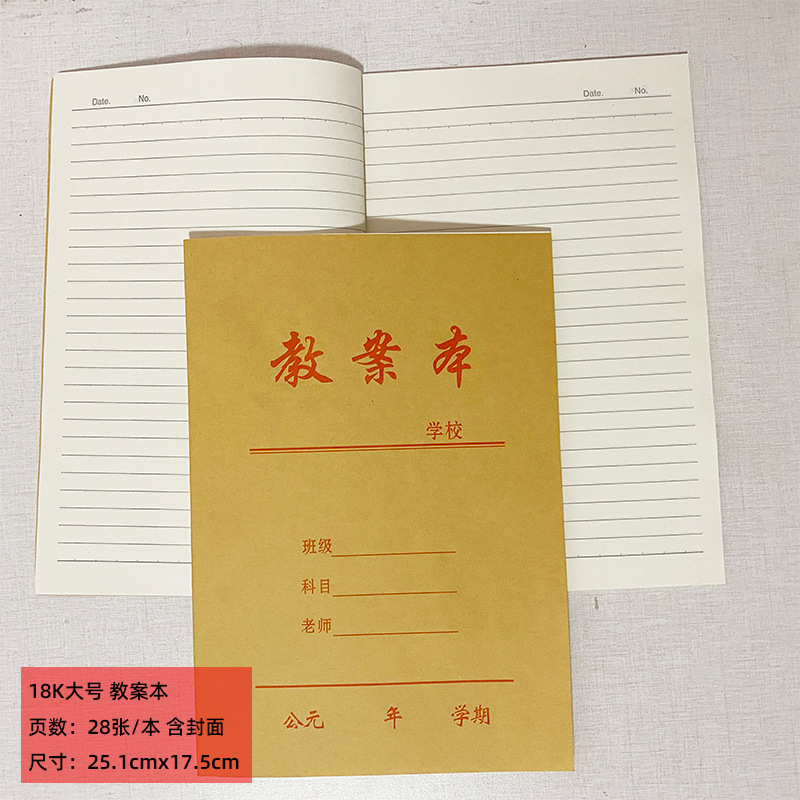 Date. No.
Date. No.
教案本
学校
班级
科目
老师
公元 年 学期
18K大号 教案本
页数：28张/本 含封面
尺寸：25.1cmx17.5cm